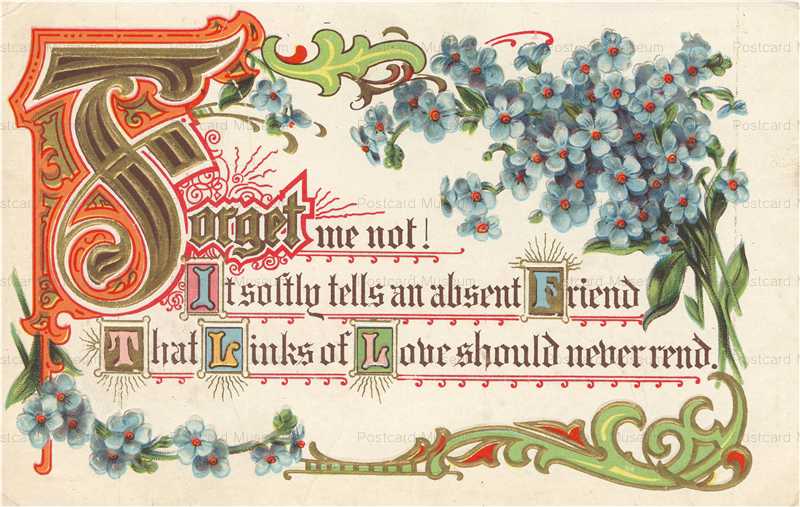 Forget me not!
It softly tells an absent Friend
That Links of Love should never rend.
Postcard Museum